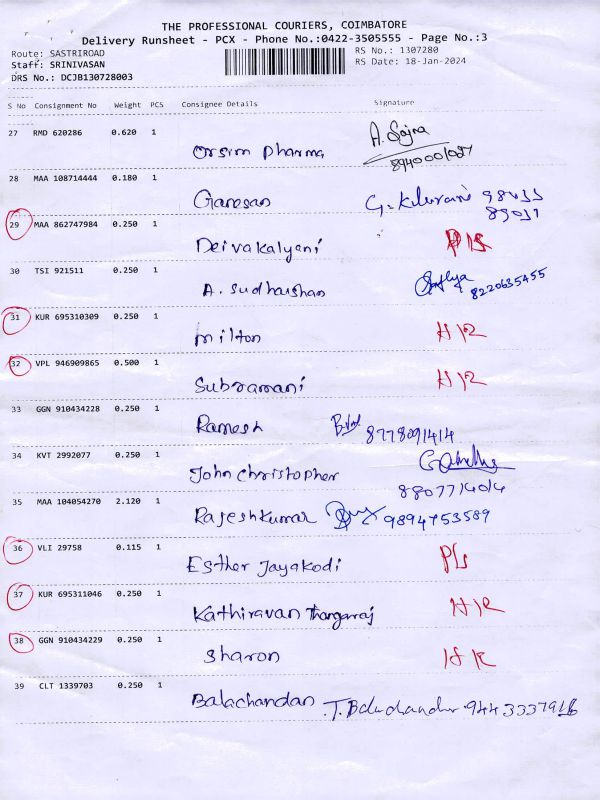 THE PROFESSIONAL COURIERS, COIMBATORE
Delivery Runsheet - PCX - Phone No.:0422-3505555 - Page No.:3
Route: SASTRIROAD RS No.: 1307280
Staff: SRINIVASAN RS Date: 18-Jan-2024
DRS No.: DCJB130728003
S No Consignment No Weight PCS Consignee Details Signature
27 RMD 620286 0.620 1
Orsim Pharma A. Sajna
8940001027
28 MAA 108714444 0.180 1
Ganesan
29 MAA 862747984 0.250 1
Deivakalyani
30 TSI 921511 0.250 1
A. Sudharshan Sathya 8220635455
31 KUR 695310309 0.250 1
Milton H|R
32 VPL 946909865 0.500 1
Subramani H|R
33 GGN 910434228 0.250 1
Ramesh 8778091414
34 KVT 2992077 0.250 1
John Christopher
8807714014
35 MAA 104054270 2.120 1
Rajeshkumar 9894753589
36 VLI 29758 0.115 1
Esther Jayakodi
37 KUR 695311046 0.250 1
Kathiravan Thangaraj H|R
38 GGN 910434229 0.250 1
Sharon
39 CLT 1339703 0.250 1
Balachandan T. Balachandar 9443337916